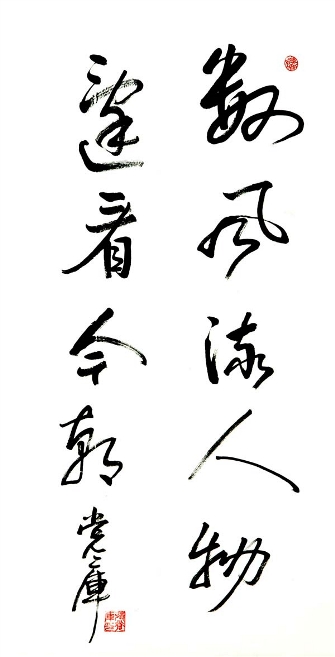 数风流人物
还看今朝 党库